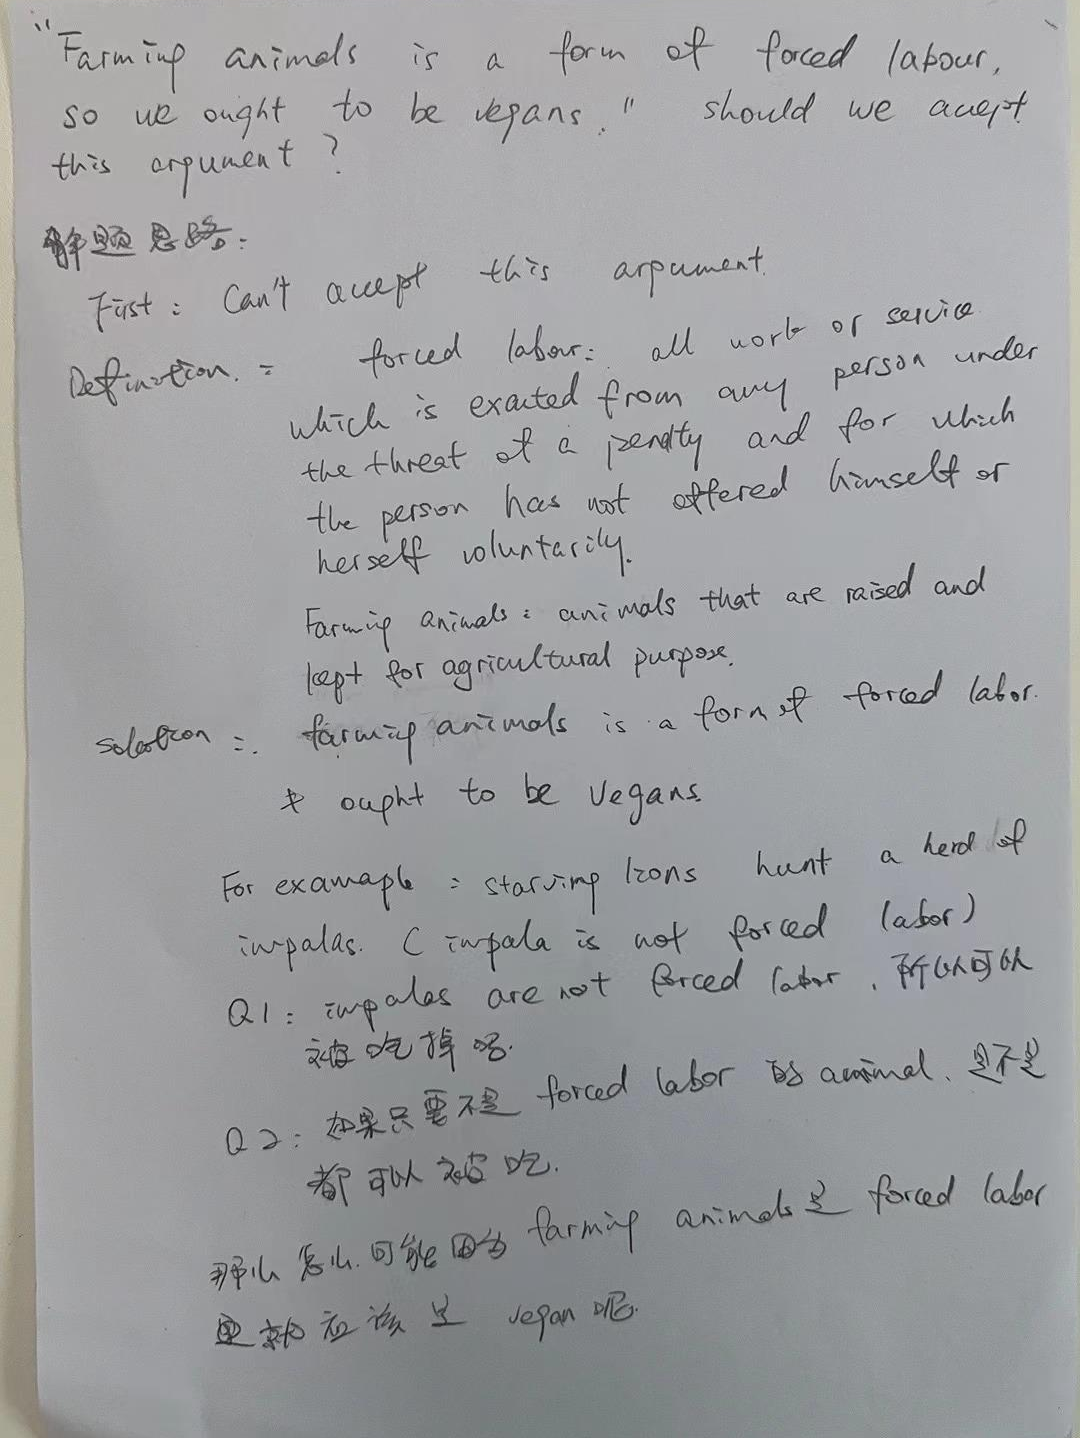 "Farming animals is a form of forced labour,
so we ought to be vegans." should we accept
this argument?
解题思路:
First: Can't accept this argument.
Defination: forced labour: all work or service
which is exacted from any person under
the threat of a penalty and for which
the person has not offered himself or
herself voluntarily.
Farming animals: animals that are raised and
kept for agricultural purpose.
farming animals is a form of forced labor.
≠ ought to be vegans.
For example: starving lions hunt a herd of
impalas. (impala is not forced labor)
Q1: impalas are not forced labor, 所以可以
被吃掉吗.
Q2: 如果只要不是 forced labor 的 animal, 是不是
都可以被吃.
那么怎么可能因为 farming animals 是 forced labor
就应该是 vegan 呢.